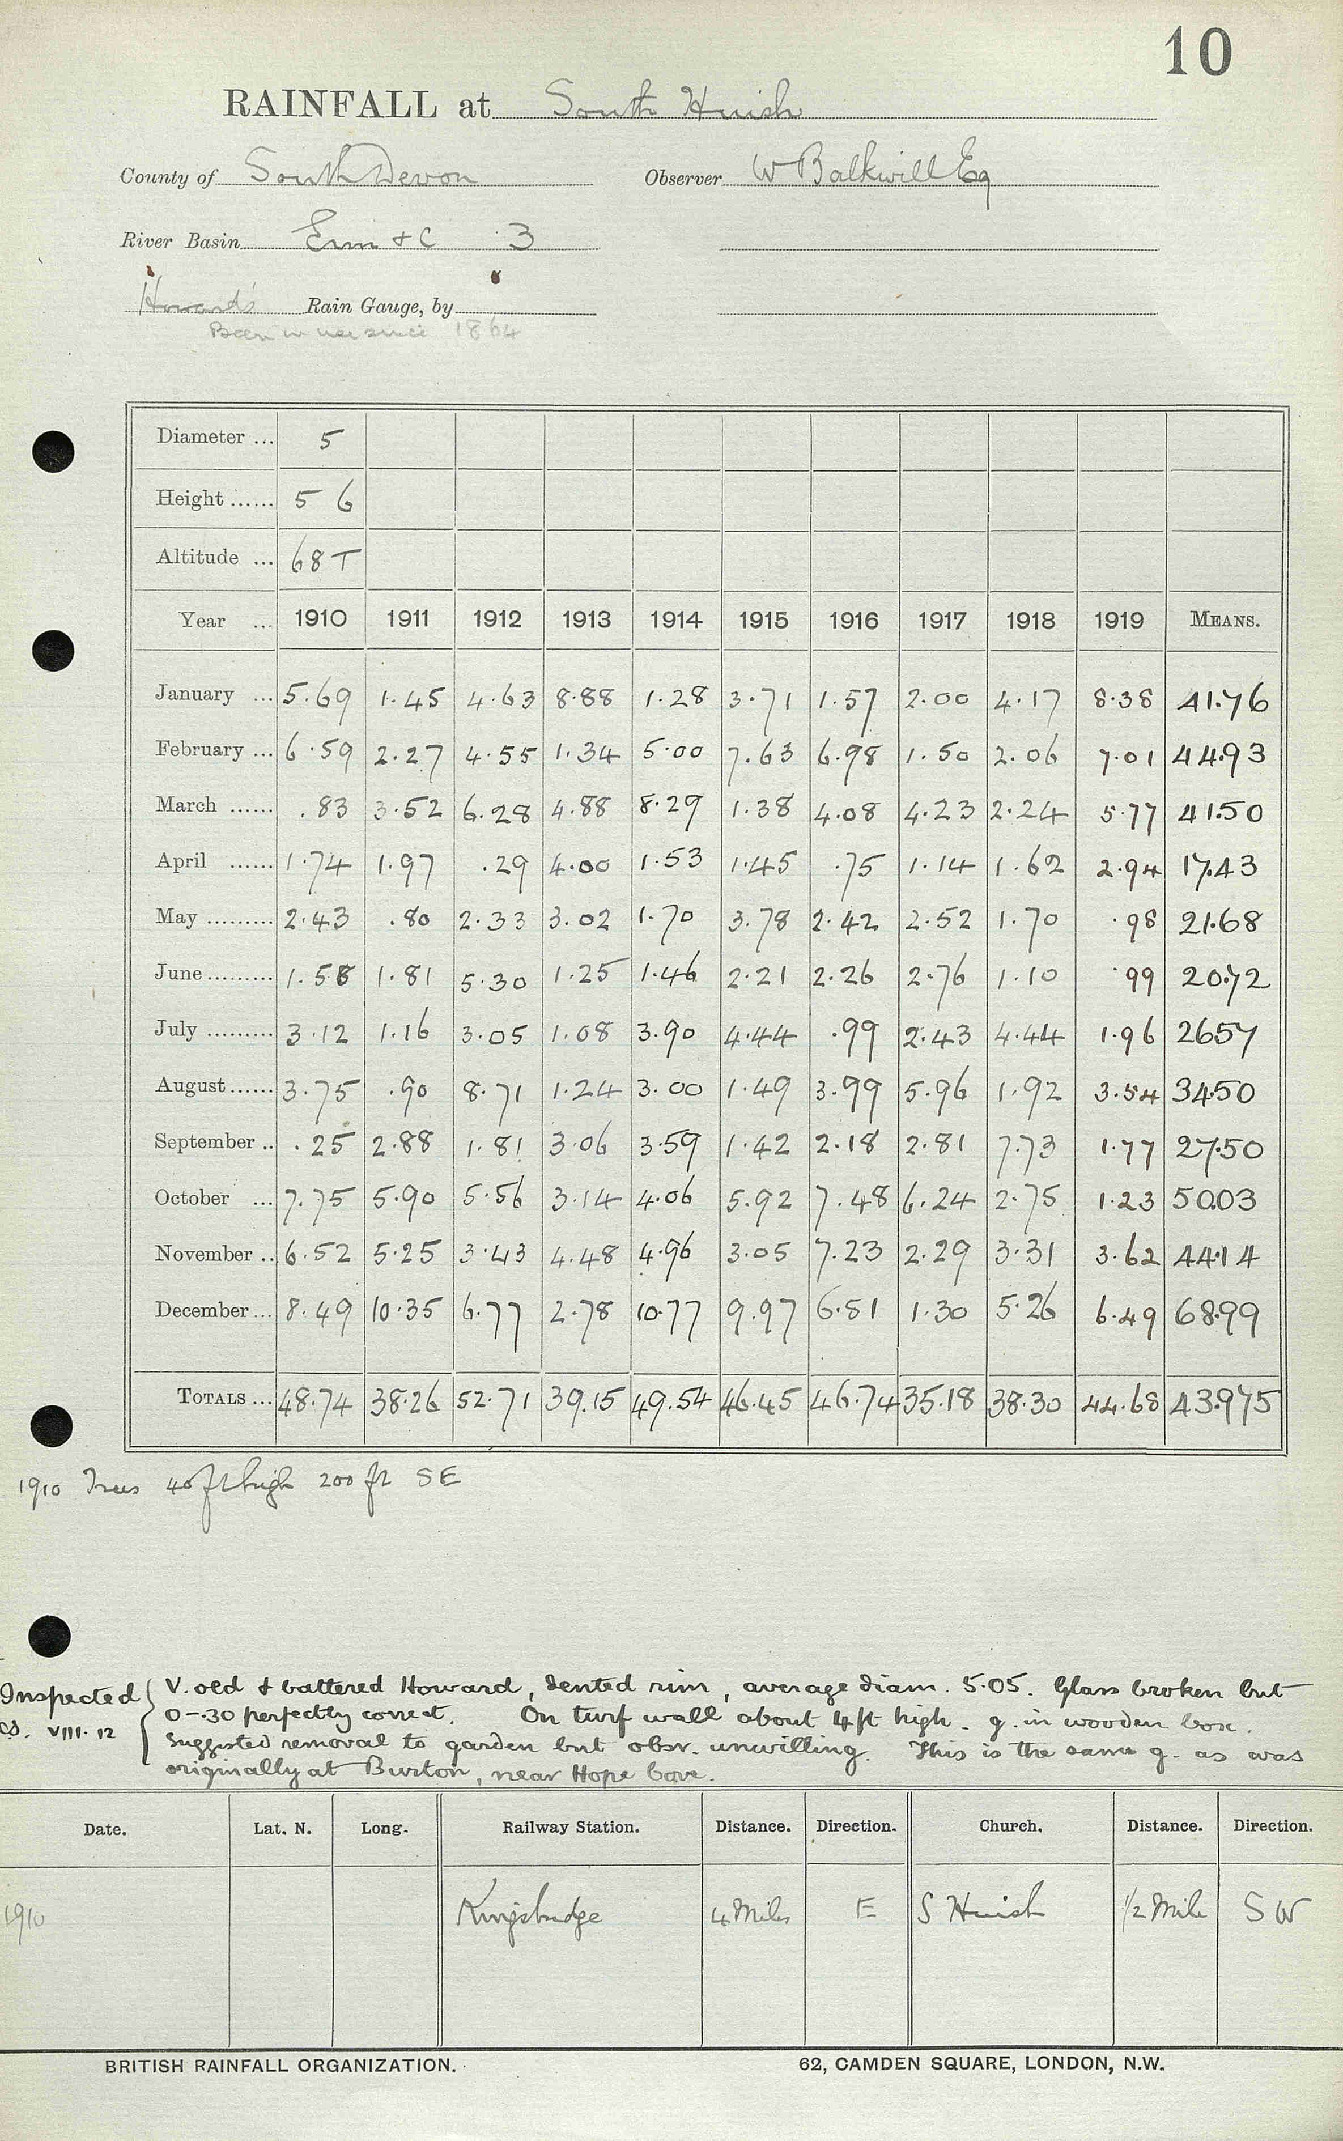 10
RAINFALL at South Huish
County of South Devon Observer W Balkwill Esq
River Basin Erm & C 3
Howard's Rain Gauge, by
Been in use since 1864
Diameter ... 5
Height ...... 5 6
Altitude ... 68 T
Year ... 1910 1911 1912 1913 1914 1915 1916 1917 1918 1919 MEANS.
January ... 5.69 1.45 4.63 8.88 1.28 3.71 1.57 2.00 4.17 8.38 41.76
February ... 6.59 2.27 4.55 1.34 5.00 7.63 6.98 1.50 2.06 7.01 44.93
March ...... .83 3.52 6.28 4.88 8.29 1.38 4.08 4.23 2.24 5.77 41.50
April ...... 1.74 1.97 .29 4.00 1.53 1.45 .75 1.14 1.62 2.94 17.43
May ......... 2.43 .80 2.33 3.02 1.70 3.78 2.42 2.52 1.70 .98 21.68
June ......... 1.58 1.81 5.30 1.25 1.46 2.21 2.26 2.76 1.10 .99 20.72
July ......... 3.12 1.16 3.05 1.08 3.90 4.44 .99 2.43 4.44 1.96 26.57
August ...... 3.75 .90 8.71 1.24 3.00 1.49 3.99 5.96 1.92 3.54 34.50
September .. .25 2.88 1.81 3.06 3.59 1.42 2.18 2.81 7.73 1.77 27.50
October ... 7.75 5.90 5.56 3.14 4.06 5.92 7.48 6.24 2.75 1.23 50.03
November .. 6.52 5.25 3.43 4.48 4.96 3.05 7.23 2.29 3.31 3.62 44.14
December ... 8.49 10.35 6.77 2.78 10.77 9.97 6.81 1.30 5.26 6.49 68.99
TOTALS ... 48.74 38.26 52.71 39.15 49.54 46.45 46.74 35.18 38.30 44.68 43.975
1910 Trees 40 ft high 200 ft SE
Inspected V. old & battered Howard, dented rim, average diam. 5.05. Glass broken but
VIII. 12 0-.30 perfectly correct. On turf wall about 4ft high. g. in wooden box.
Suggested removal to garden but obsr. unwilling. This is the same g. as was
originally at Burton, near Hope Cove.
Date. Lat. N. Long. Railway Station. Distance. Direction. Church. Distance. Direction.
1910 Kingsbridge 4 Miles E S Huish 1/2 Mile S W
BRITISH RAINFALL ORGANIZATION. 62, CAMDEN SQUARE, LONDON, N.W.